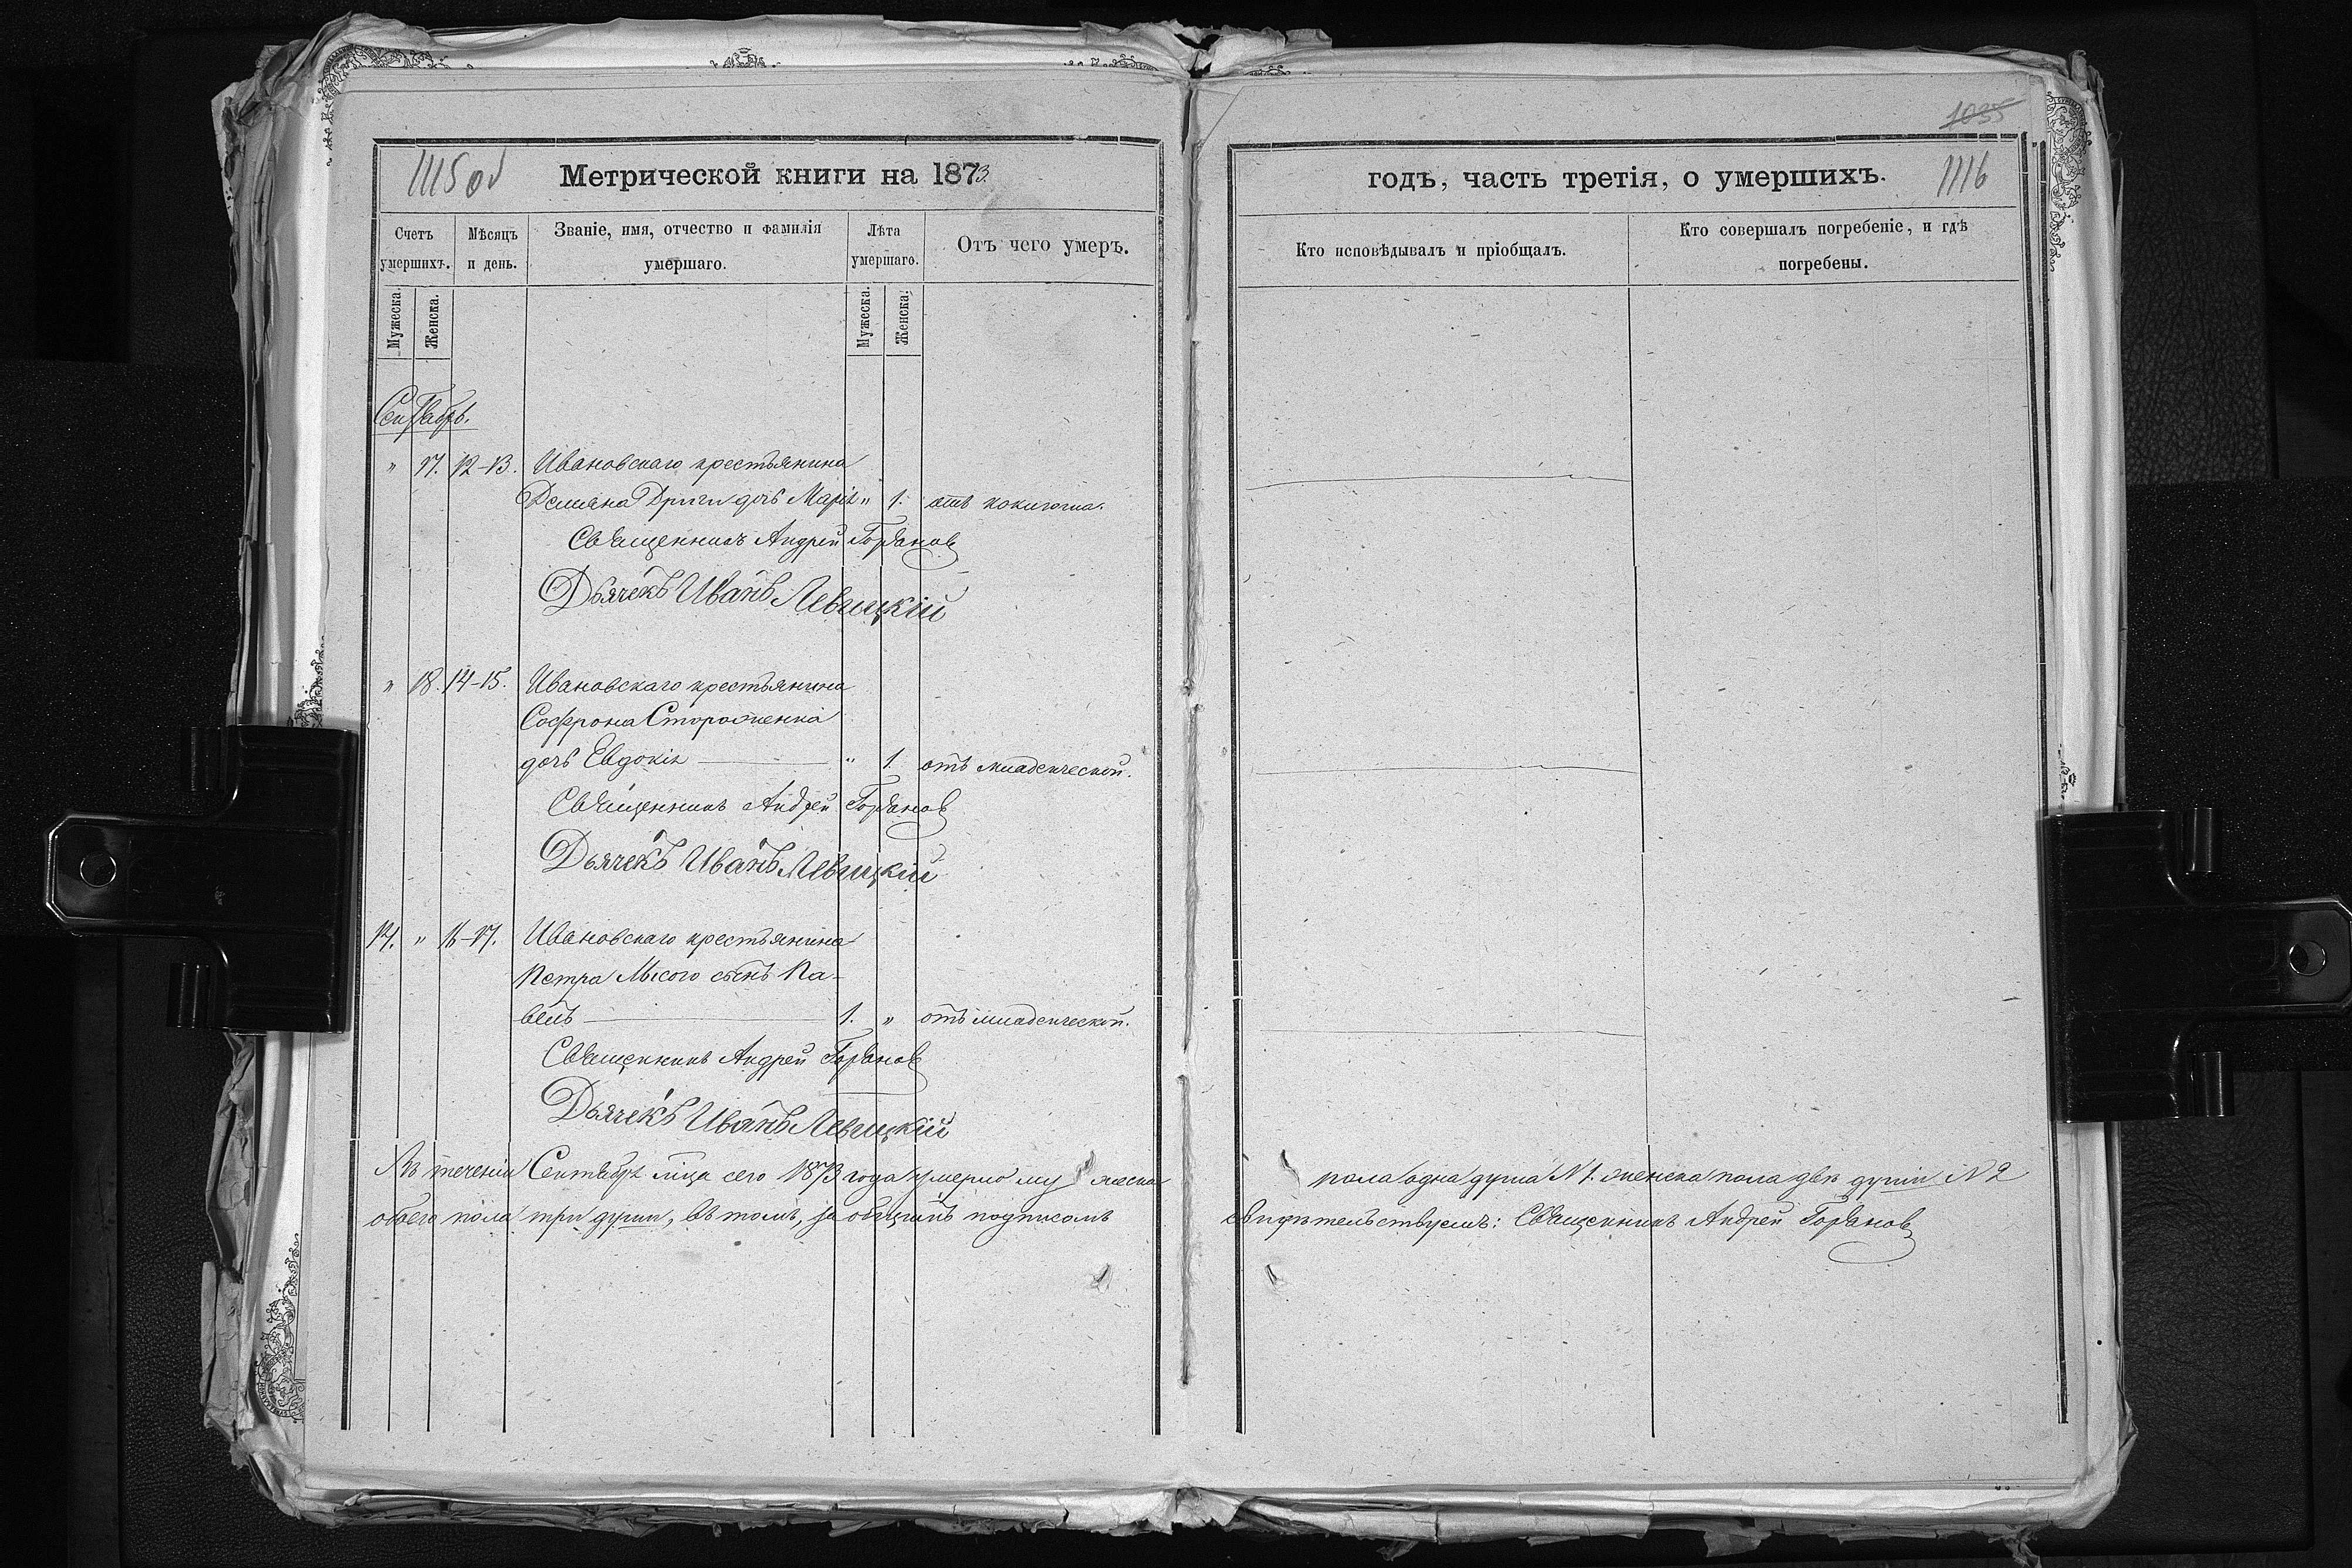 1035
1115 об
Метрической книги на 1873
годъ, часть третія, о умершихъ.
1116
Счетъ умершихъ.
Мѣсяцъ и день.
Званіе, имя, отчество и фамилія умершаго.
Лѣта умершаго.
Отъ чего умеръ.
Кто исповѣдывалъ и пріобщалъ.
Кто совершалъ погребеніе, и гдѣ погребены.
Мужеска.
Женска.
Мужеска.
Женска.
Сентябрь.
" 17. 12-13. Ивановскаго крестьянина
Демяна Дриги дочь Марія " 1. отъ коклюша.
Священникъ Андрей
Дьячекъ Иванъ Левицкій
" 18. 14-15. Ивановскаго крестьянина
Софрона Стороженка
дочь Евдокія " 1. отъ младенческой.
Священникъ Андрей
Дьячекъ Иванъ Левицкій
14. " 16-17. Ивановскаго крестьянина
Петра Лысого сынъ Па-
велъ 1. " отъ младенческой.
Священникъ Андрей
Дьячекъ Иванъ Левицкій
Въ теченіи Сентября мѣсяца сего 1873 года умерло мужеска пола одна душа № 1. женска пола двѣ души № 2
обоего пола три души, въ томъ, за общимъ подписомъ свидѣтельствуемъ: Священникъ Андрей